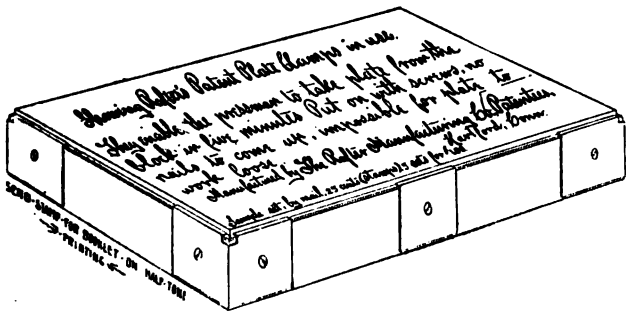 Showing Rafter's Patent Plate Clamps in use.
They enable the pressman to take plate from the
block in five minutes Put on with screws, no
nails to come up, impossible for plate to
work loose.
Manufactured by The Rafter Manufacturing Co. Patentees,
Hartford, Conn.
Sample set, by mail, 25 cents (stamps), 5 sets for
SEND STAMP FOR BOOKLET ON HALF-TONE
PRINTING